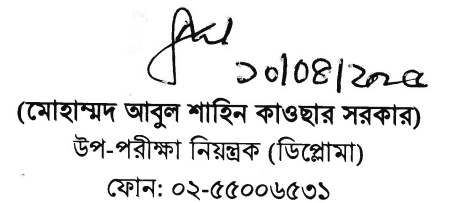 ১০/০৪/২০২৫
(মোহাম্মদ আবুল শাহিন কাওছার সরকার)
উপ-পরীক্ষা নিয়ন্ত্রক (ডিপ্লোমা)
ফোন: ০২-৫৫০০৬৫৩১